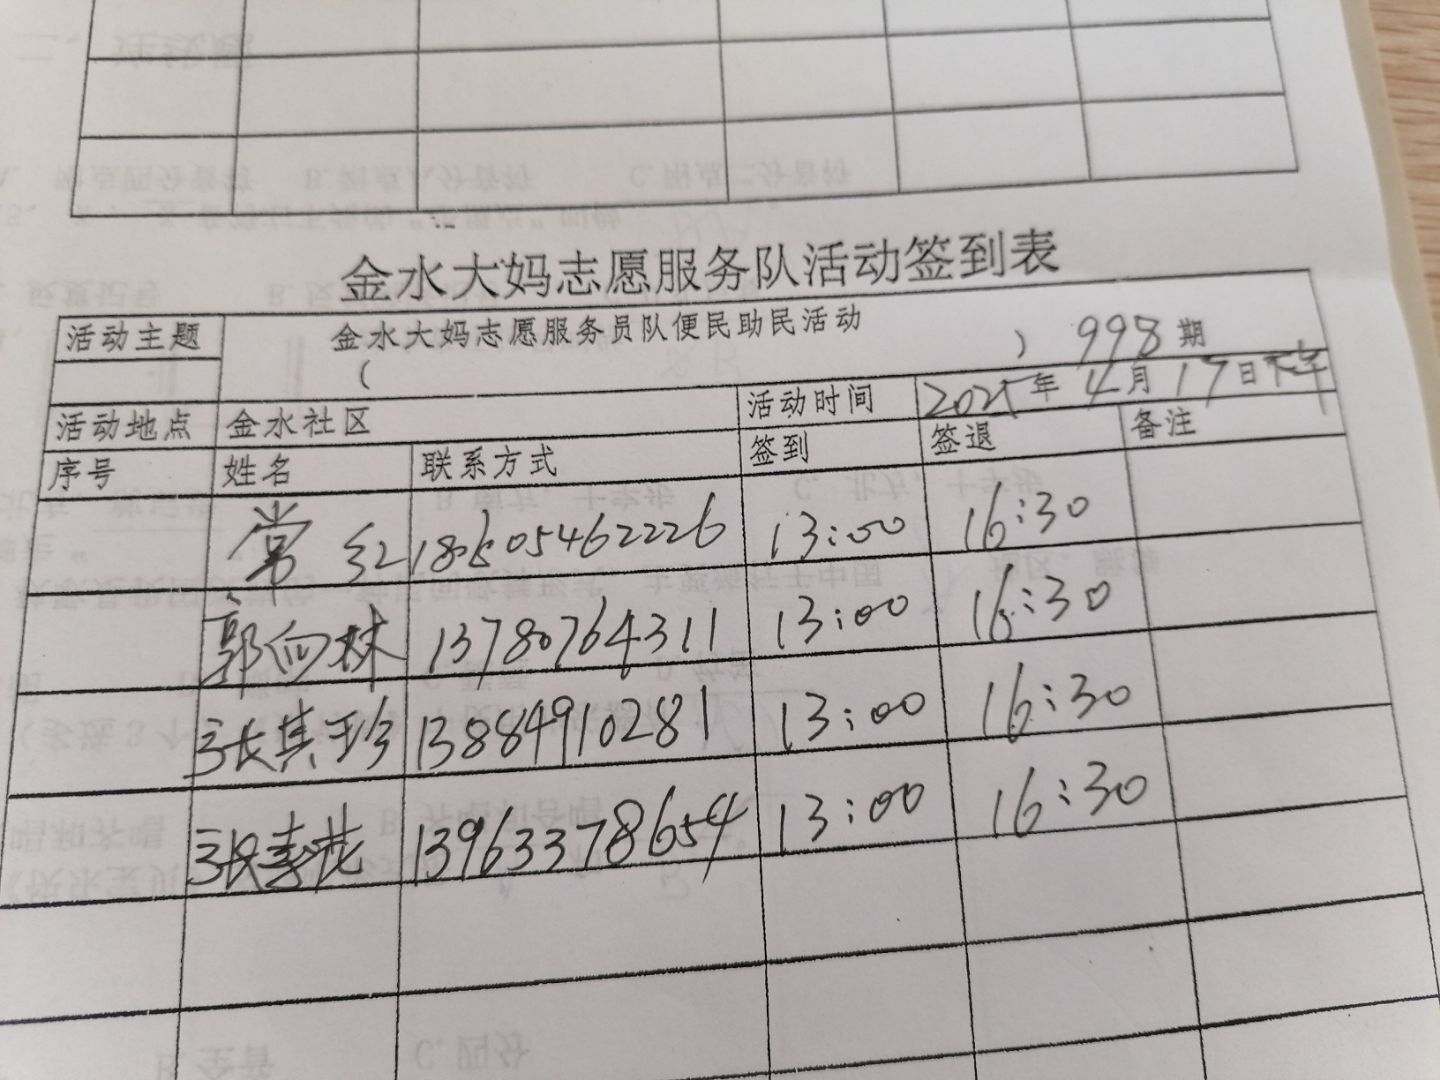 金水大妈志愿服务队活动签到表
活动主题 金水大妈志愿服务员队便民助民活动
( ) 998期
活动地点 金水社区 活动时间 2025年4月17日下午
序号 姓名 联系方式 签到 签退 备注
常红 18605462226 13:00 16:30
郭向林 13780764311 13:00 16:30
张其珍 13884910281 13:00 16:30
张春花 13963378654 13:00 16:30